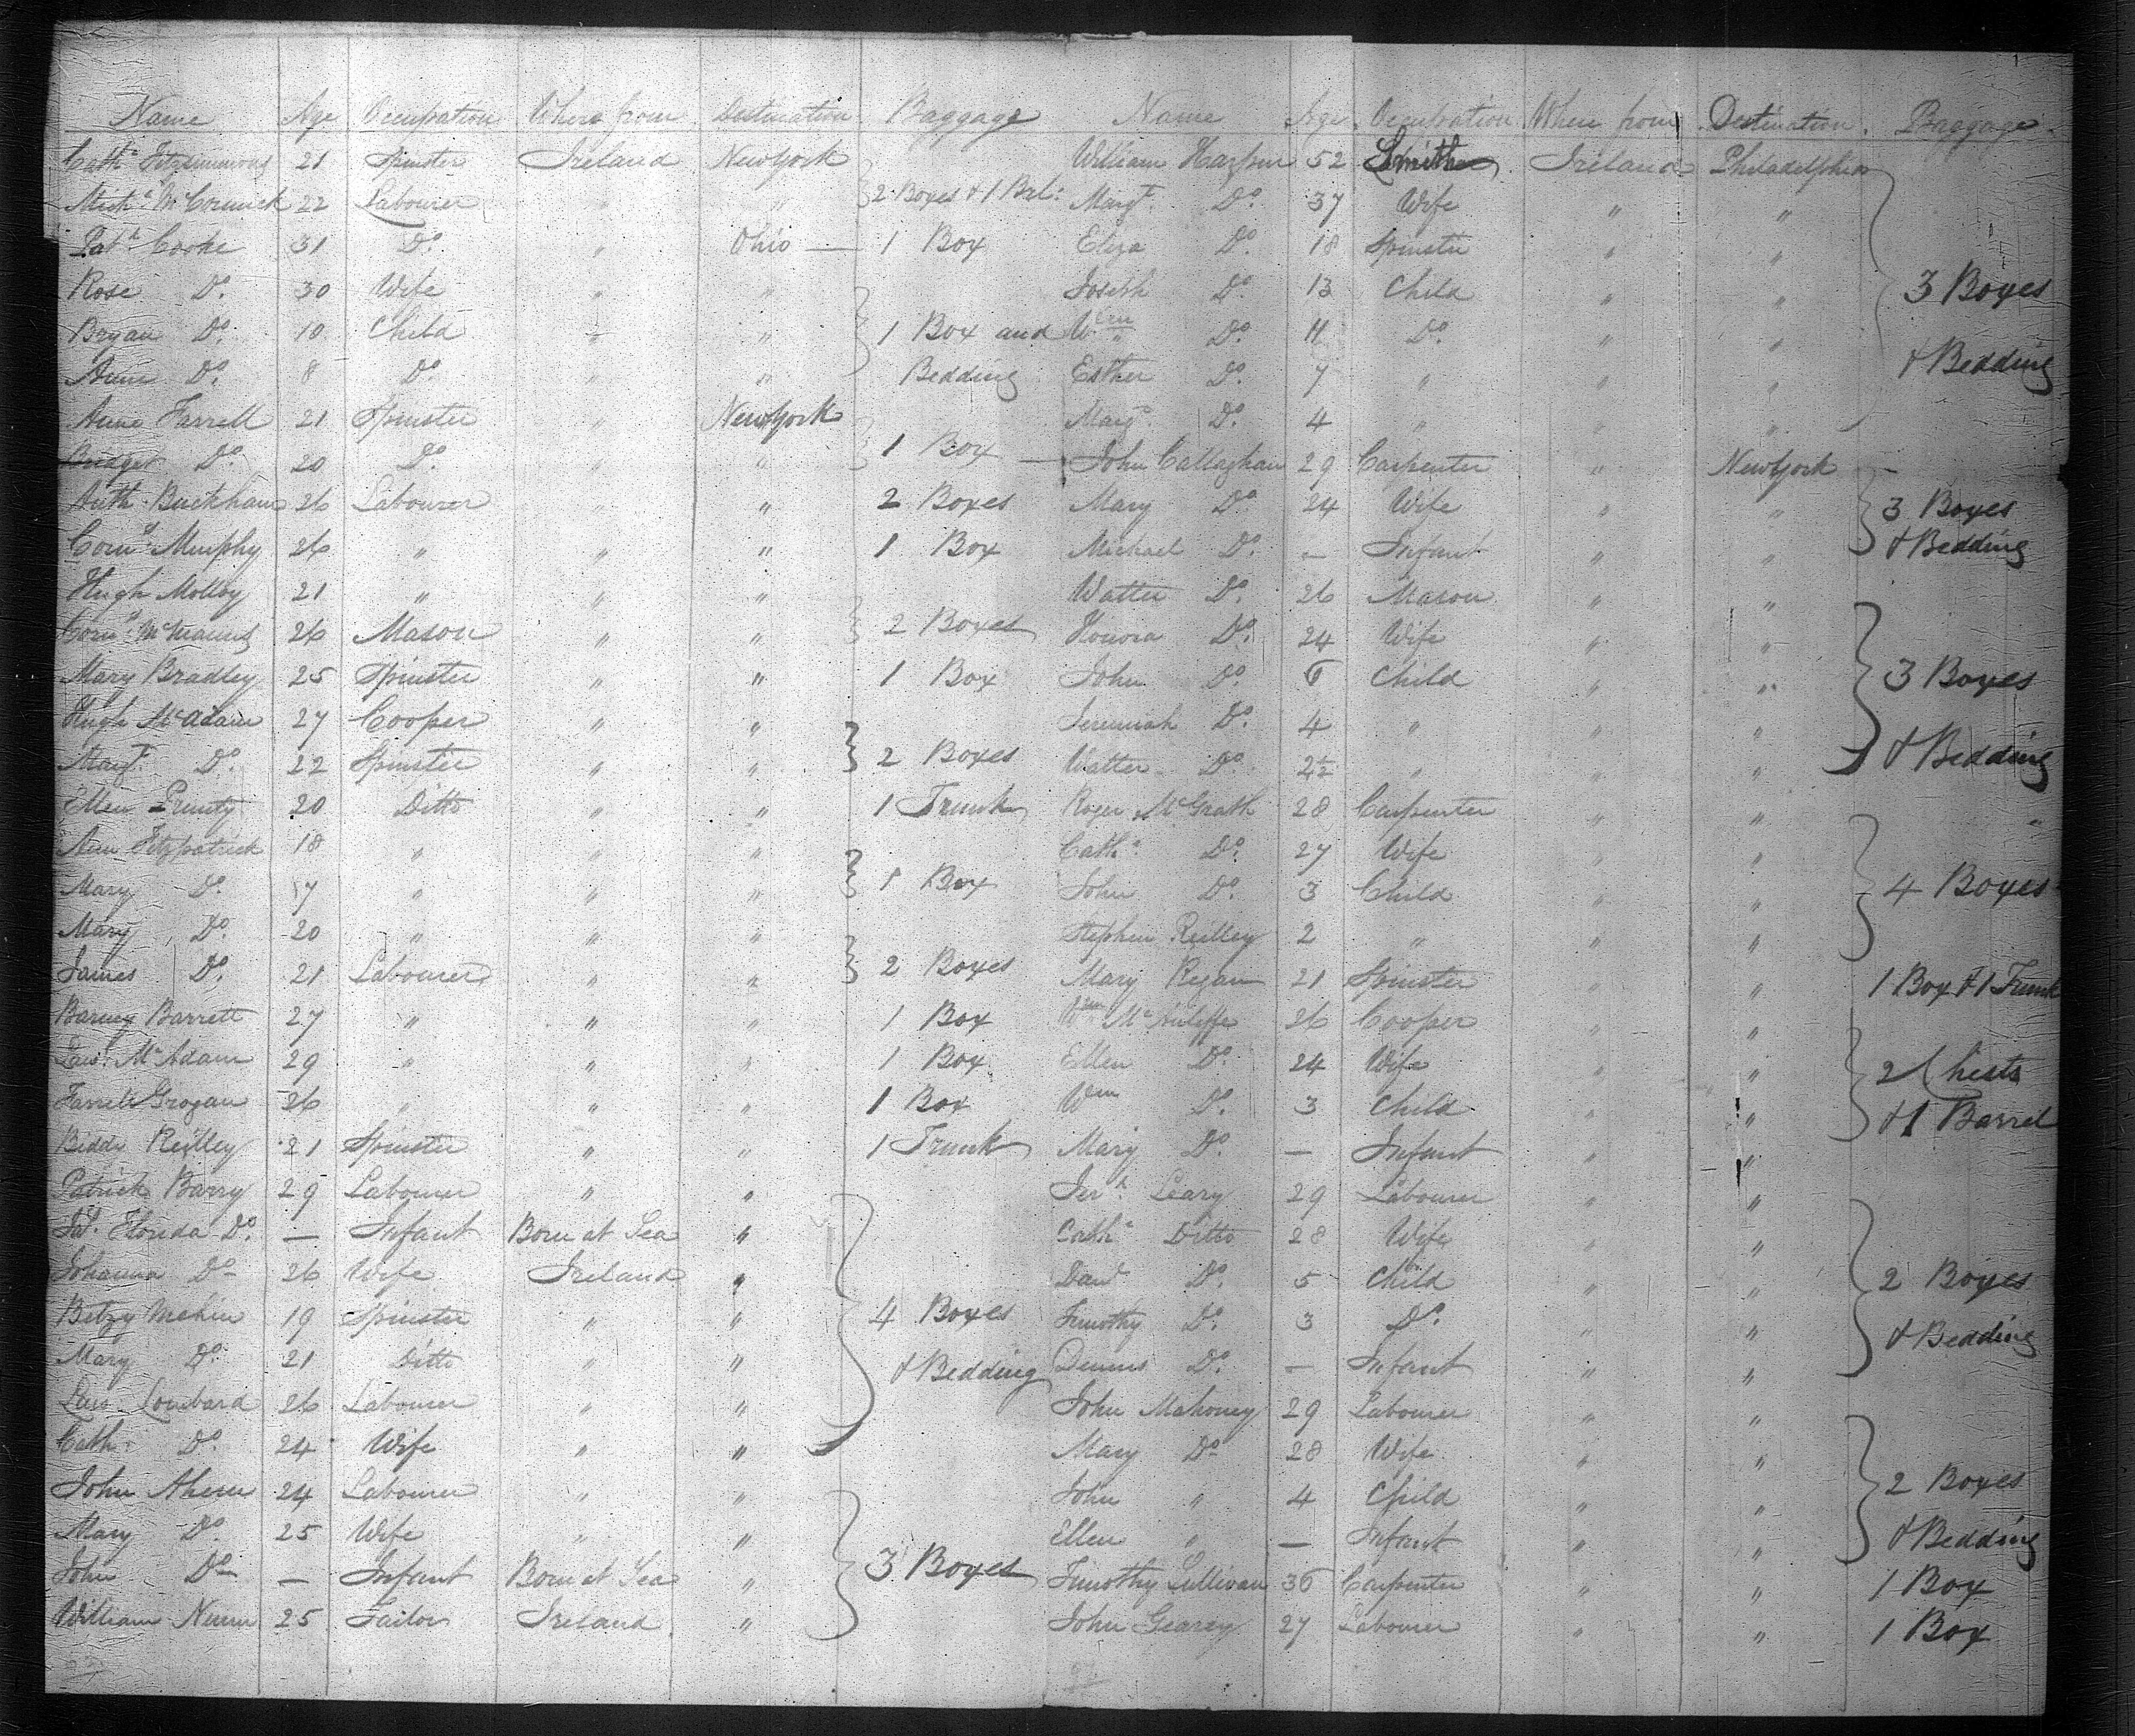 Name Age Occupation Where from Destination Baggage
Cathe Fitzsimmons 21 Spinster Ireland New York
Michl McCormick 22 Labourer " " 2 Boxes & 1 Brl.
Patk Cooke 31 Do. " Ohio — 1 Box
Rose Do. 30 Wife " "
Bryan Do. 10 Child " " 1 Box and
Anne Do. 8 Do. " " Bedding
Anne Farrell 21 Spinster " New York
Bridget Do. 20 Do. " " 1 Box —
Anth. Buckhan 26 Labourer " " 2 Boxes
Corns Murphy 26 " " " 1 Box
Hugh Molloy 21 " " "
Corns McManus 26 Mason " " 2 Boxes
Mary Bradley 25 Spinster " " 1 Box
Hugh McAdam 27 Cooper " "
Margt Do. 22 Spinster " " 2 Boxes
Ellen Prunty 20 Ditto " " 1 Trunk
Ann Fitzpatrick 18 " " "
Mary Do. 7 " " " 1 Box
Mary Do. 20 " " "
James Do. 21 Labourer " " 2 Boxes
Barney Barrett 27 " " " 1 Box
Law. McAdam 29 " " " 1 Box
Farrell Grogan 26 " " " 1 Box
Biddy Reilley 21 Spinster " " 1 Trunk
Patrick Barry 29 Labourer " "
Florida Do. — Infant Born at Sea "
Johanna Do 26 Wife Ireland "
Betzy Mehin 19 Spinster " " 4 Boxes
Mary Do. 21 Ditto " " & Bedding
Law. Lombard 26 Labourer " "
Cath. Do. 24 Wife " "
John Ahern 24 Labourer " "
Mary Do. 25 Wife " "
John Do — Infant Born at Sea " 3 Boxes
William Nunn 25 Tailor Ireland "
Name Age Occupation Where from Destination Baggage
William Harper 52 Smith Ireland Philadelphia
Margt. Do. 37 Wife " "
Eliza Do. 18 Spinster " "
Joseph Do. 13 Child " " 3 Boxes
Wm Do. 11 Do. " "
Esther Do. 7 " " " & Bedding
Margt. Do. 4 " " "
John Callaghan 29 Carpenter " New York
Mary Do. 24 Wife " " 3 Boxes
Michael Do. — Infant " " & Bedding
Watter Do. 26 Mason " "
Honora Do. 24 Wife " "
John Do 6 Child " " 3 Boxes
Jeremiah Do. 4 " " "
Watter Do. 2½ " " " & Bedding
Roger McGrath 28 Carpenter " "
Cathe. Do. 27 Wife " "
John Do. 3 Child " " 4 Boxes
Stephen Reilley 2 " " "
Mary Regan 21 Spinster " " 1 Box & 1 Trunk
Wm McAuliffe 26 Cooper " "
Ellen Do. 24 Wife " " 2 Chests
Wm Do. 3 Child " " & 1 Barrel
Mary Do. — Infant " "
Jerh. Leary 29 Labourer " "
Cathe Ditto 28 Wife " "
Danl Do. 5 Child " " 2 Boxes
Timothy Do. 3 Do. " " & Bedding
Dennis Do. — Infant " "
John Mahoney 29 Labourer " "
Mary Do 28 Wife " "
John " 4 Child " " 2 Boxes
Ellen " — Infant " " & Bedding
Timothy Sullivan 36 Carpenter " " 1 Box
John Gearey 27 Labourer " " 1 Box